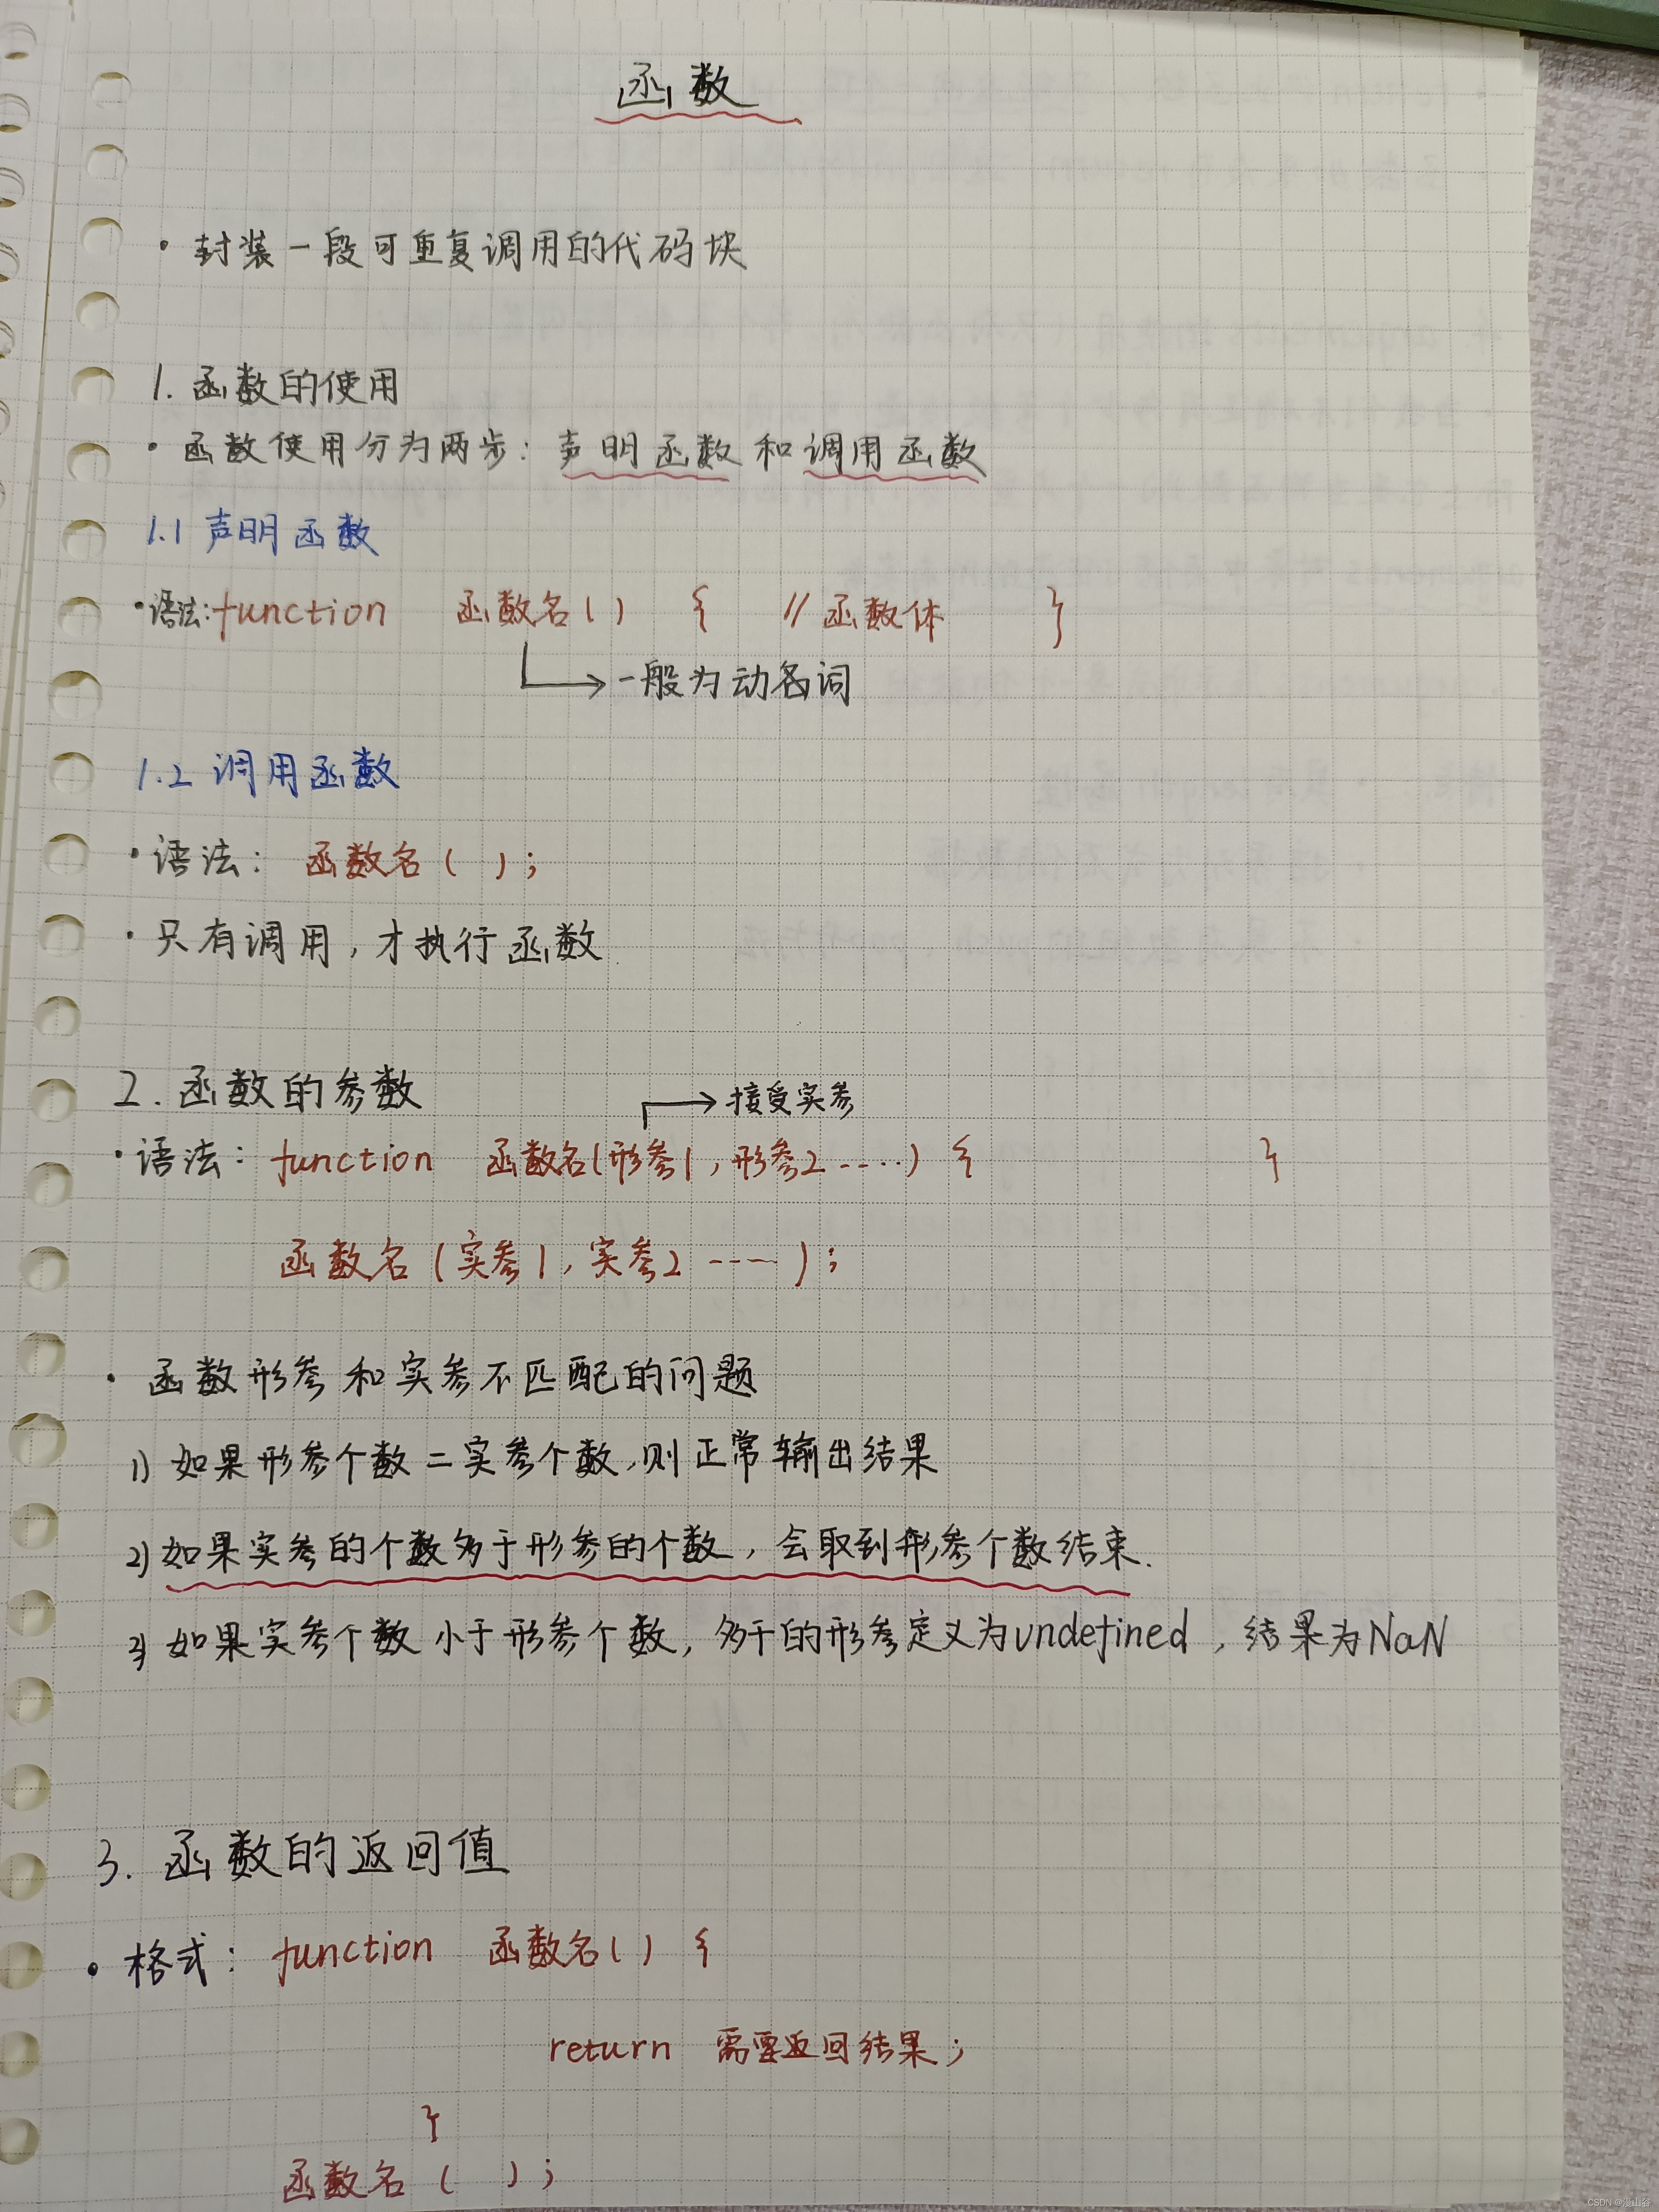 函数
· 封装一段可重复调用的代码块
1. 函数的使用
· 函数使用分为两步：声明函数和调用函数
1.1 声明函数
· 语法：function 函数名() { // 函数体 }
一般为动名词
1.2 调用函数
· 语法： 函数名 ( ) ;
· 只有调用，才执行函数
2. 函数的参数
接受实参
· 语法： function 函数名(形参1，形参2 ……) { }
函数名 (实参1，实参2 ……) ;
· 函数形参和实参不匹配的问题
1) 如果形参个数 = 实参个数，则正常输出结果
2) 如果实参的个数多于形参的个数，会取到形参个数结束.
3) 如果实参个数小于形参个数，多于的形参定义为undefined，结果为NaN
3. 函数的返回值
· 格式： function 函数名() {
return 需要返回结果；
}
函数名 ( ) ;
CSDN